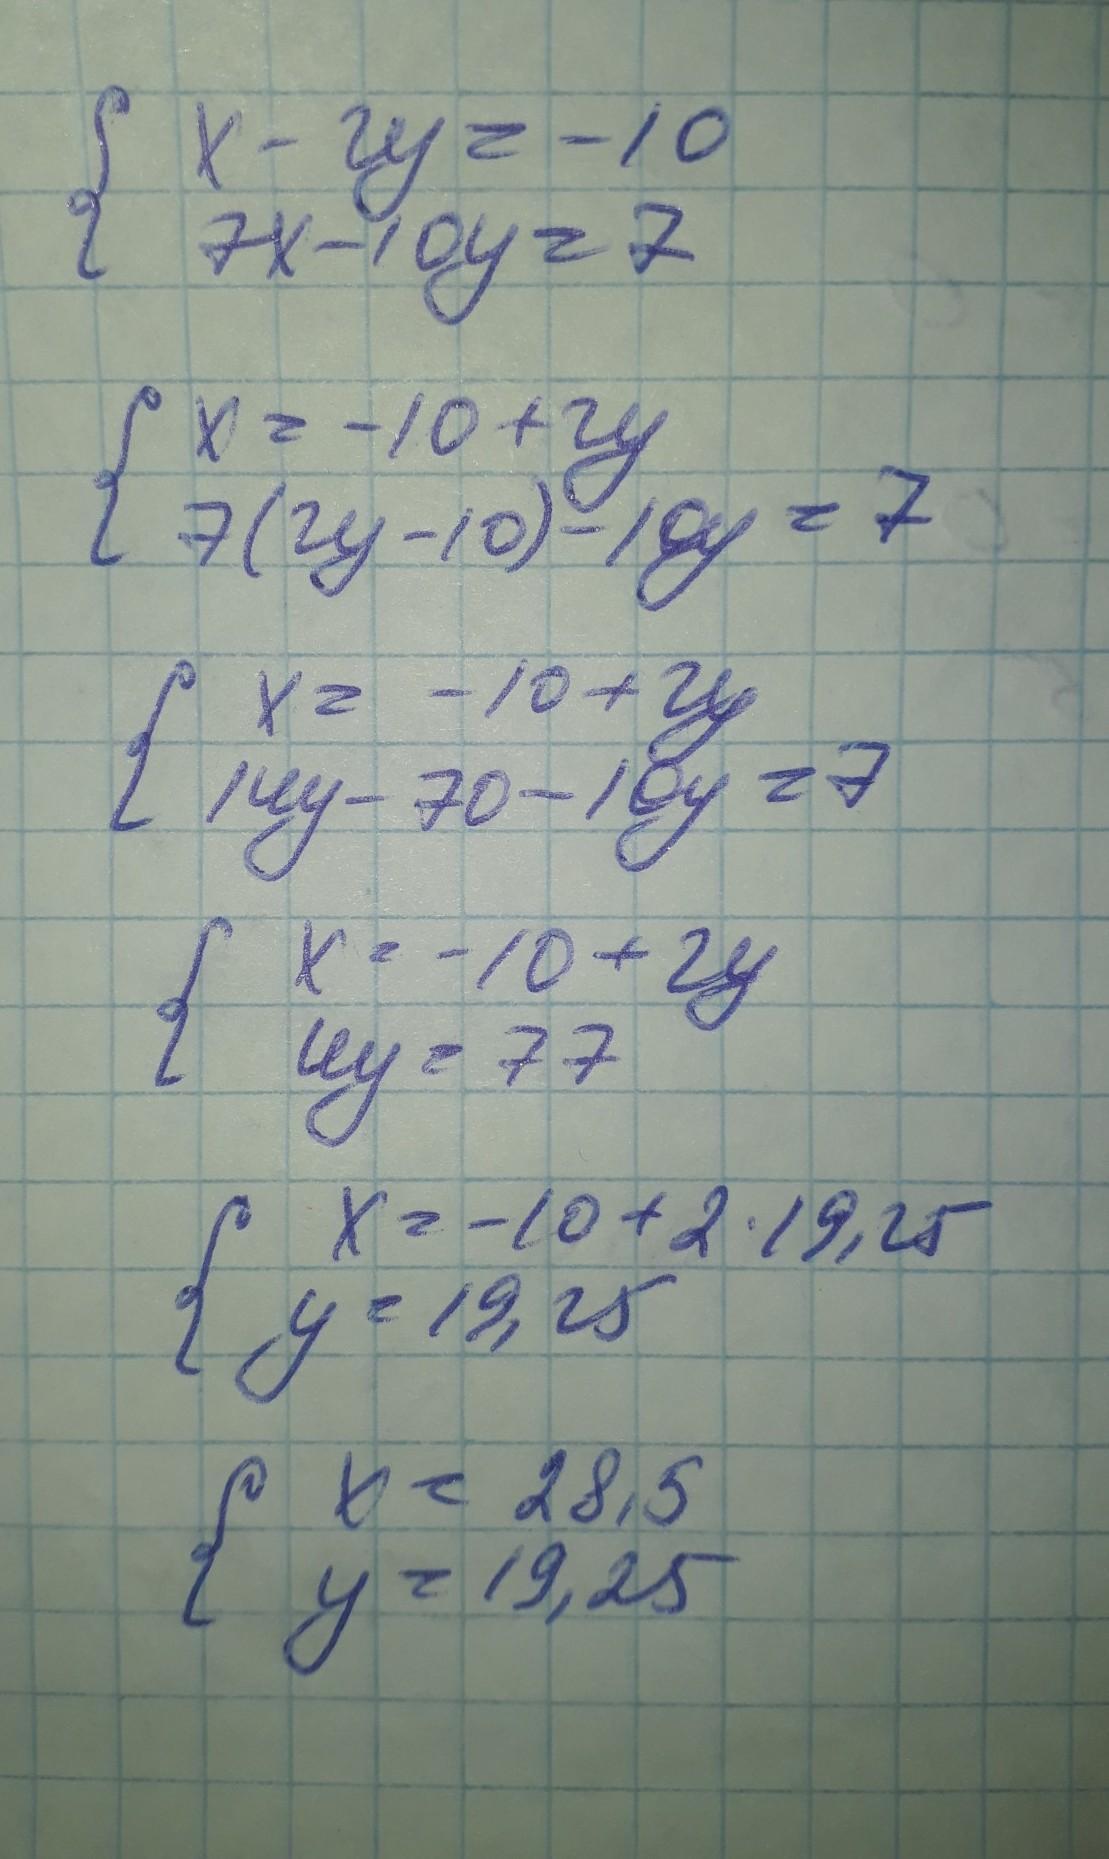 x - 2y = -10
7x - 10y = 7
x = -10 + 2y
7(2y - 10) - 10y = 7
x = -10 + 2y
14y - 70 - 10y = 7
x = -10 + 2y
4y = 77
x = -10 + 2 · 19,25
y = 19,25
x = 28,5
y = 19,25